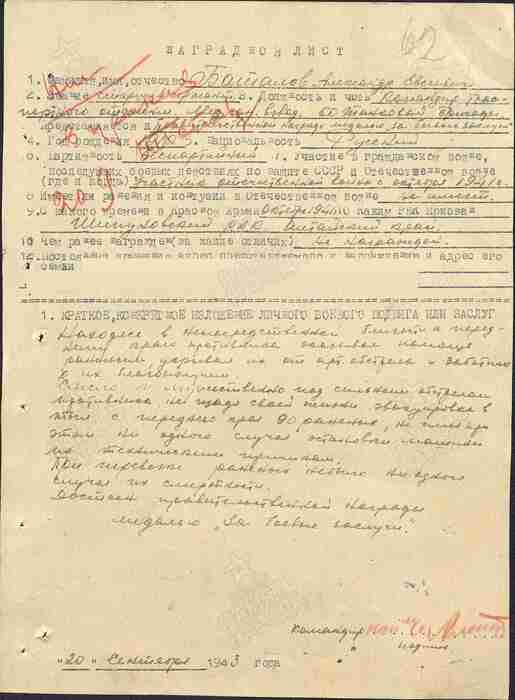 62
НАГРАДНОЙ ЛИСТ
1. Фамилия, имя, отчество Баталов Александр Евсеевич
2. Звание старший сержант 3. Должность и часть Командир транс-
портного отделения взвод. 60 Танковой бригады
Представляется к правительственной награде медалью "За боевые заслуги"
4. Год рождения 5. Национальность Русский
6. Партийность Беспартийный 7. Участие в гражданской войне,
последующих боевых действиях по защите СССР и Отечественной войне
(где и когда) Участник отечественной войны с октября 1941 г.
8. Имеет ли ранения и контузии в Отечественной войне не имеет
9. С какого времени в красной армии октябрь 1941 10 каким РВК призван
Шипуновский РВК Алтайский край
Чем ранее награжден (за какие отличия) не награжден
12. Постоянный домашний адрес представляемого к награждению и адрес его
семьи
1. КРАТКОЕ, КОНКРЕТНОЕ ИЗЛОЖЕНИЕ ЛИЧНОГО БОЕВОГО ПОДВИГА ИЛИ ЗАСЛУГ
Находясь в непосредственной близости к перед-
нему краю противника оказывал помощь
раненым укрывал их от арт. обстрела и заботился
о их благополучии.
Смело и мужественно под сильным обстрелом
противника не щадя своей жизни эвакуировал в
тыл с переднего края 90 раненых, не имея при
этом ни одного случая остановки машины
по техническим причинам.
При перевозке раненых небыло ни одного
случая их смертности.
Достоин правительственной награды
медалью "За боевые заслуги".
Командир
подпись
"20" Сентября 1943 года